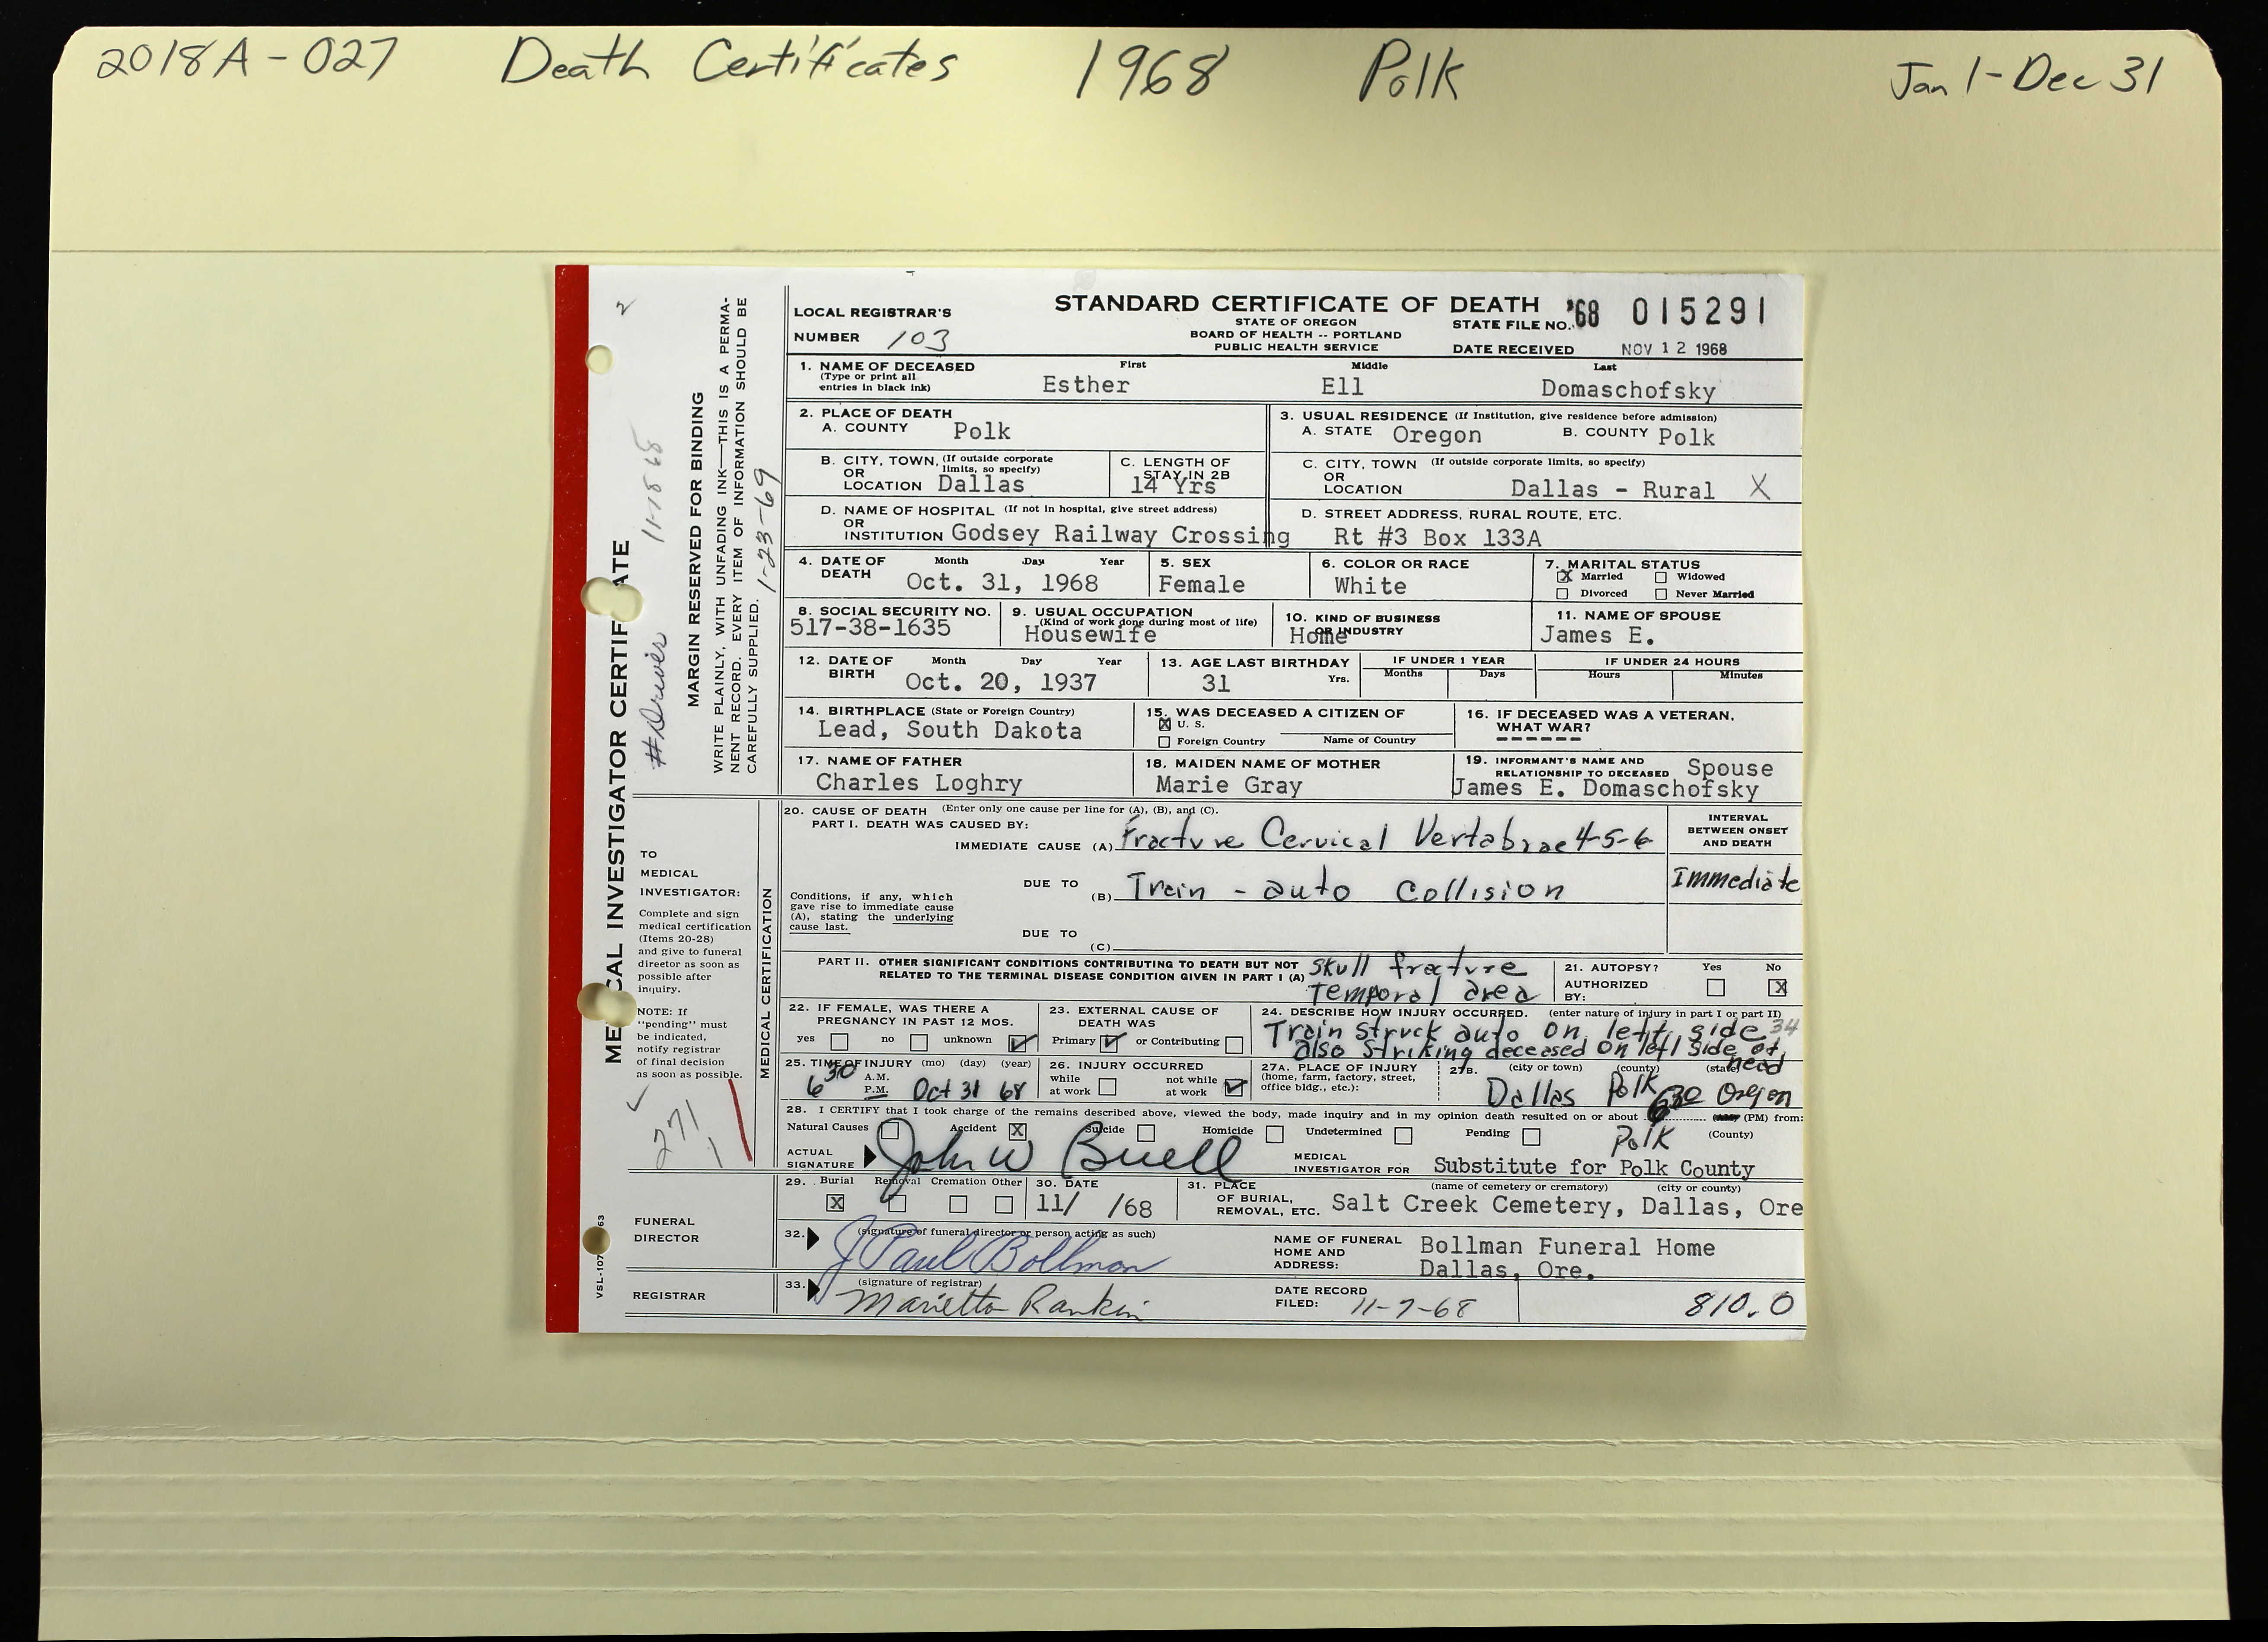 2018A-027 Death Certificates 1968 Polk Jan 1-Dec 31
STANDARD CERTIFICATE OF DEATH
STATE OF OREGON
BOARD OF HEALTH -- PORTLAND
PUBLIC HEALTH SERVICE
LOCAL REGISTRAR'S
NUMBER 103
STATE FILE NO. '68 015291
DATE RECEIVED NOV 12 1968
1. NAME OF DECEASED First Middle Last
(Type or print all
entries in black ink) Esther Ell Domaschofsky
2. PLACE OF DEATH
A. COUNTY Polk
3. USUAL RESIDENCE (If Institution, give residence before admission)
A. STATE Oregon B. COUNTY Polk
B. CITY, TOWN, (If outside corporate
OR limits, so specify)
LOCATION Dallas
C. LENGTH OF
STAY IN 2B
14 Yrs
C. CITY, TOWN (If outside corporate limits, so specify)
OR
LOCATION Dallas - Rural X
D. NAME OF HOSPITAL (If not in hospital, give street address)
OR
INSTITUTION Godsey Railway Crossing
D. STREET ADDRESS, RURAL ROUTE, ETC.
Rt #3 Box 133A
4. DATE OF Month Day Year
DEATH Oct. 31, 1968
5. SEX
Female
6. COLOR OR RACE
White
7. MARITAL STATUS
X Married Widowed
Divorced Never Married
8. SOCIAL SECURITY NO.
517-38-1635
9. USUAL OCCUPATION
(Kind of work done during most of life)
Housewife
10. KIND OF BUSINESS
OR INDUSTRY
Home
11. NAME OF SPOUSE
James E.
12. DATE OF Month Day Year
BIRTH Oct. 20, 1937
13. AGE LAST BIRTHDAY
31 Yrs.
IF UNDER 1 YEAR
Months Days
IF UNDER 24 HOURS
Hours Minutes
14. BIRTHPLACE (State or Foreign Country)
Lead, South Dakota
15. WAS DECEASED A CITIZEN OF
X U. S.
Foreign Country Name of Country
16. IF DECEASED WAS A VETERAN,
WHAT WAR?
------
17. NAME OF FATHER
Charles Loghry
18. MAIDEN NAME OF MOTHER
Marie Gray
19. INFORMANT'S NAME AND
RELATIONSHIP TO DECEASED Spouse
James E. Domaschofsky
20. CAUSE OF DEATH (Enter only one cause per line for (A), (B), and (C).
PART I. DEATH WAS CAUSED BY:
IMMEDIATE CAUSE (A) Fracture Cervical Vertabrae 4-5-6
INTERVAL
BETWEEN ONSET
AND DEATH
Immediate
Conditions, if any, which
gave rise to immediate cause
(A), stating the underlying
cause last.
DUE TO
(B) Train - auto Collision
DUE TO
(C)
PART II. OTHER SIGNIFICANT CONDITIONS CONTRIBUTING TO DEATH BUT NOT
RELATED TO THE TERMINAL DISEASE CONDITION GIVEN IN PART I (A)
Skull fracture
Temporal area
21. AUTOPSY? Yes No
AUTHORIZED X
BY:
22. IF FEMALE, WAS THERE A
PREGNANCY IN PAST 12 MOS.
yes no unknown ✓
23. EXTERNAL CAUSE OF
DEATH WAS
Primary ✓ or Contributing
24. DESCRIBE HOW INJURY OCCURRED. (enter nature of injury in part I or part II)
Train struck auto on left side 34
also striking deceased on left side of
head
25. TIME OF INJURY (mo) (day) (year)
6 30 A.M.
P.M. Oct 31 68
26. INJURY OCCURRED
while
at work
not while
at work ✓
27A. PLACE OF INJURY
(home, farm, factory, street,
office bldg., etc.):
27B. (city or town) (county) (state)
Dallas Polk Oregon
28. I CERTIFY that I took charge of the remains described above, viewed the body, made inquiry and in my opinion death resulted on or about 630 (PM) from:
Natural Causes Accident X Suicide Homicide Undetermined Pending Polk (County)
ACTUAL
SIGNATURE John W Buell
MEDICAL
INVESTIGATOR FOR Substitute for Polk County
29. Burial Removal Cremation Other
X
30. DATE
11/ /68
31. PLACE (name of cemetery or crematory) (city or county)
OF BURIAL,
REMOVAL, ETC. Salt Creek Cemetery, Dallas, Ore
FUNERAL
DIRECTOR
32. (signature of funeral director or person acting as such)
J Paul Bollman
NAME OF FUNERAL
HOME AND
ADDRESS:
Bollman Funeral Home
Dallas, Ore.
REGISTRAR
33. (signature of registrar)
Marietta Rankin
DATE RECORD
FILED: 11-7-68
810.0
MEDICAL INVESTIGATOR CERTIFICATE
#Driver 11-18 68
MARGIN RESERVED FOR BINDING
WRITE PLAINLY, WITH UNFADING INK—THIS IS A PERMA-
NENT RECORD. EVERY ITEM OF INFORMATION SHOULD BE
CAREFULLY SUPPLIED. 1-23-69
2
TO
MEDICAL
INVESTIGATOR:
Complete and sign
medical certification
(Items 20-28)
and give to funeral
director as soon as
possible after
inquiry.
NOTE: If
"pending" must
be indicated,
notify registrar
of final decision
as soon as possible.
MEDICAL CERTIFICATION
271
1